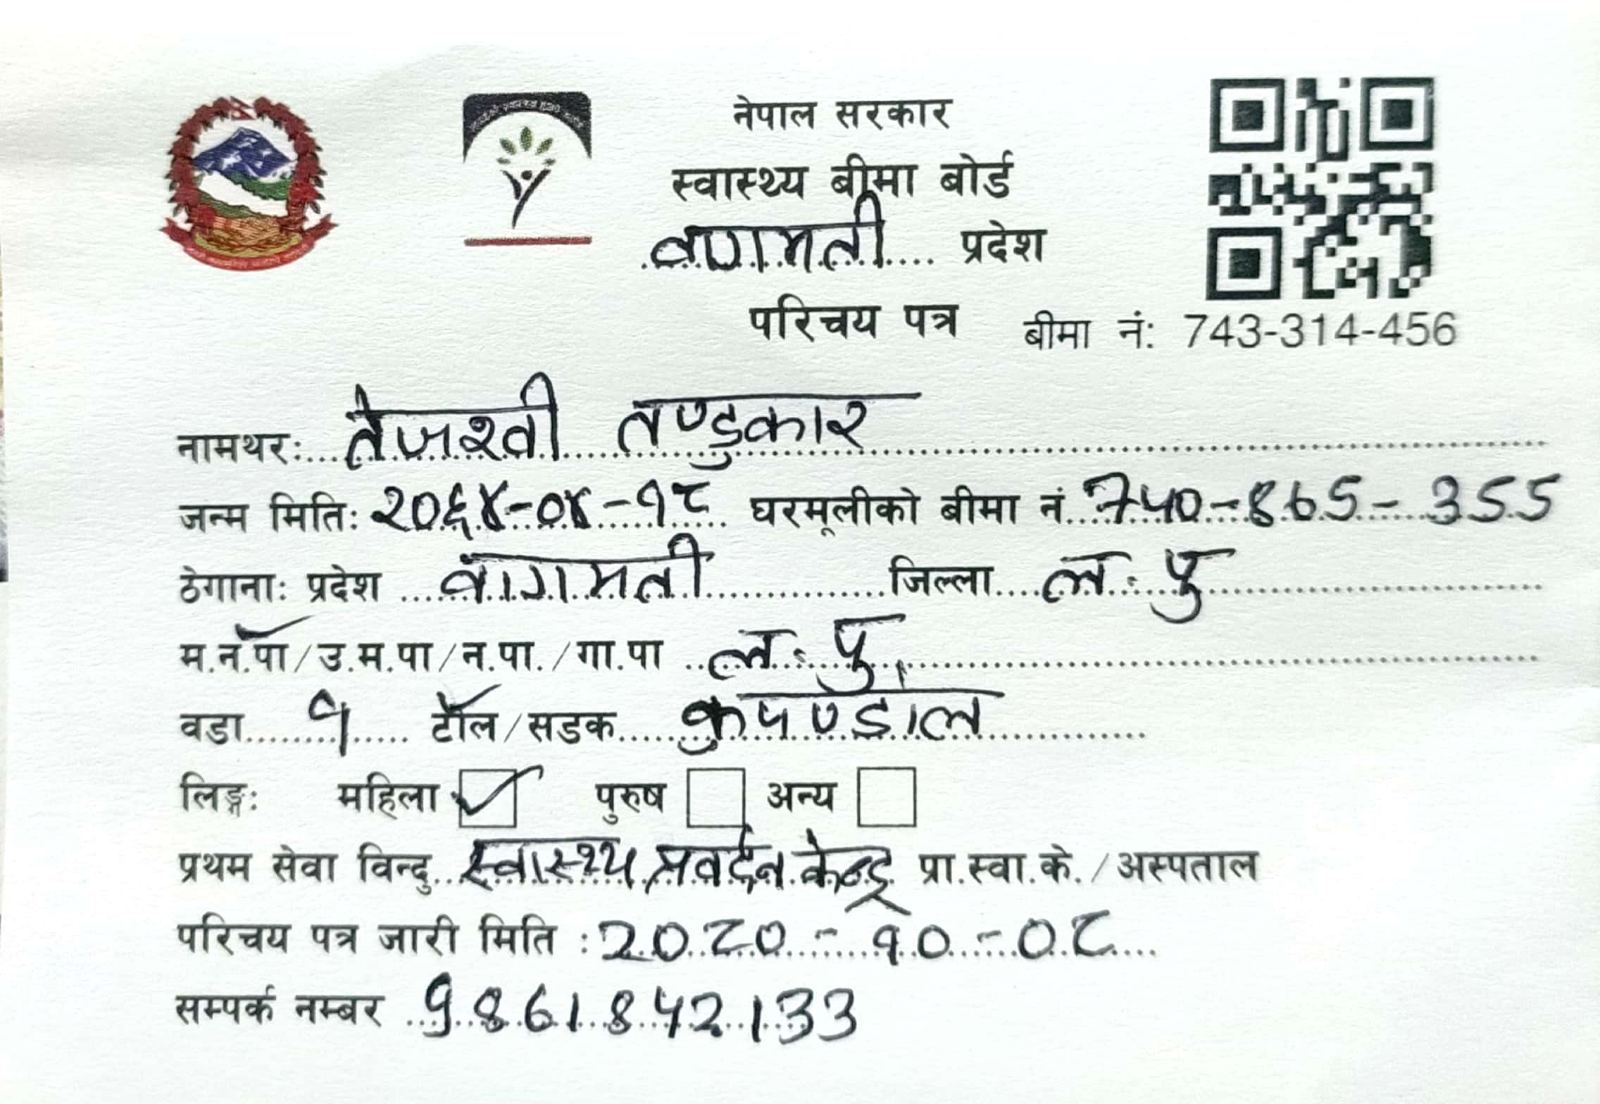 नेपाल सरकार
स्वास्थ्य बीमा बोर्ड
वागमती प्रदेश
परिचय पत्र
बीमा नं: 743-314-456
नामथर: तेजश्वी तण्डुकार
जन्म मिति: २०६४-०४-१८ घरमूलीको बीमा नं. 740-865-355
ठेगाना: प्रदेश वागमती जिल्ला ल. पु
म.न.पा/उ.म.पा/न.पा./गा.पा ल. पु.
वडा १ टोल/सडक कुपण्डोल
लिङ्ग: महिला ✓ पुरुष अन्य
प्रथम सेवा विन्दु स्वास्थ्य प्रवर्दन केन्द्र प्रा.स्वा.के./अस्पताल
परिचय पत्र जारी मिति : 20८0-१0-0८
सम्पर्क नम्बर 9861842133